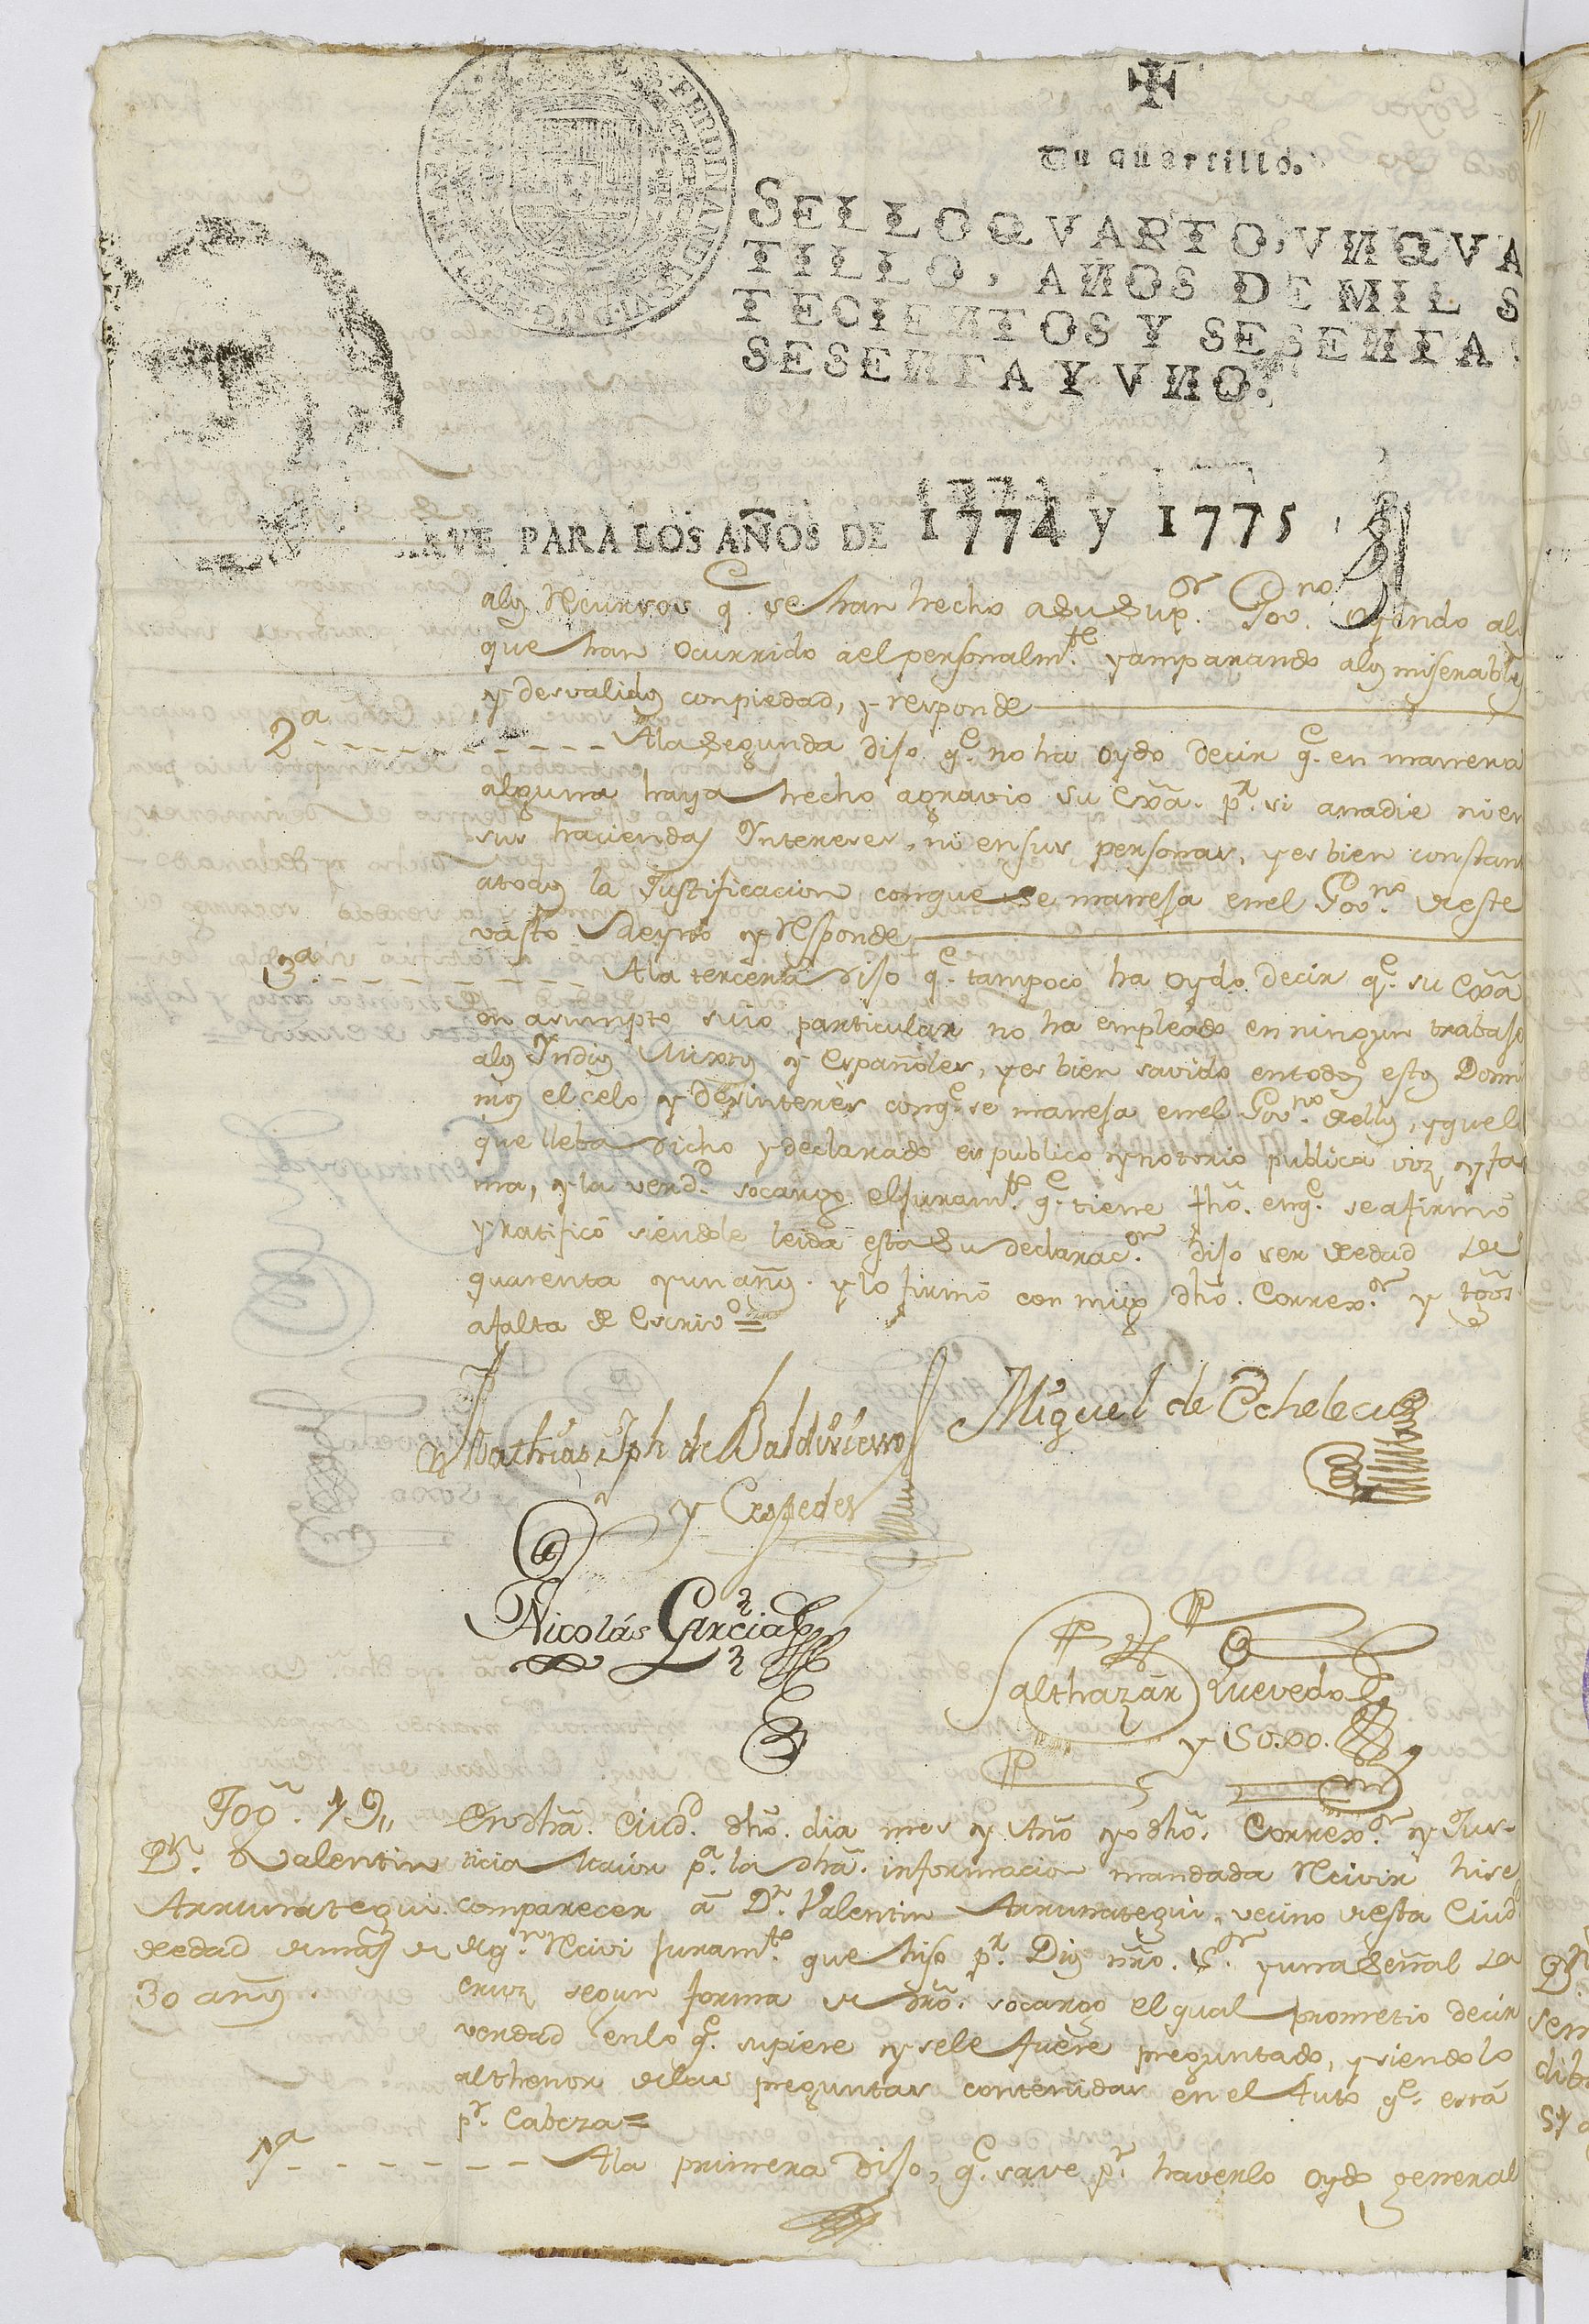 Vu quartillo.
SELLO QVARTO, VN QVA
TILLO, AÑOS DE MIL S
TECIENTOS Y SESENTA
SESENTA Y VNO.
PARA LOS AÑOS DE 1774 y 1775
alos Recursos q.e se han hecho a su Sup.or Gov.no oyendo alos
que han ocurrido a el personalm.te y amparando alos miserables
y desvalidos con piedad, y responde
2.a A la Segunda dijo q.e no ha oydo decir q.e en manera
alguna haya hecho agravio su Exã. p.r si anadie ni en
sus haciendas Intereses, ni en sus personas, y es bien constan
atodos la Justificacion con que se maneja en el Gov.no de este
vasto Reyno y responde
3.a A la tercera dijo q.e tampoco ha oydo decir q.e su Exã
en asumpto suio particular no ha empleado en ningun trabajo
alos Yndios Mixtos y Españoles, y es bien savido en todos estos Domi
nios el celo y desinteres conq.e se maneja en el Gov.no dellos, y que lo
que lleba dicho y declarado es publico y notorio publica voz y fa
ma, y la verd.d socargo el juram.to q.e tiene fhõ. enq.e se afirmó
y ratificó siendole leida esta su declarac.on dijo ser de edad de
quarenta y un años y lo firmó con migo dhõ. Correx.or y tgõs
afalta de Escriv.o =
Mathias Jph de Baldivieso
y Cespedes
Miguel de Echelecu
Nicolás Garcia
Balthazár Quevedo
y Soxo.
Tgõ. 19,,
D.n Valentin
Arrunategui.
de edad de mas de
30 años.
En dhã. Ciud.d dhõ. dia mes y Año yo dhõ. Correx.or y Jus-
ticia maior p.a la dhã. informacion mandada Recivir hise
comparecer á D.n Valentin Arrunategui, vecino de esta Ciud.d
de q.n Recivi juram.to que hiso p.r Dios nrõ. S.or y una Señal de
cruz segun forma de drõ. socargo el qual prometio decir
verdad en lo q.e supiere y sele fuere preguntado, y siendolo
al thenor delas preguntas contenidas en el Auto q.e está
p.r Cabeza =
1.a A la primera Dijo, q.e save p.r haverlo oydo general